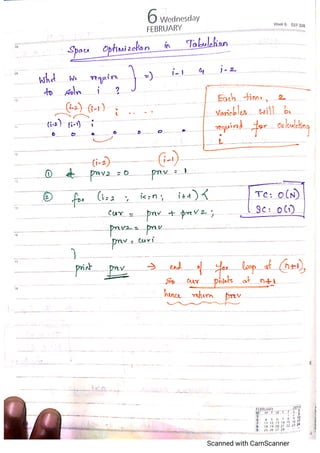 6 Wednesday
FEBRUARY
Week 6
Space Optimization in Tabulation
What we require
to solve i ?
} => i-1 & i-2
(i-2) (i-1) i . . . .
(i-2) (i-1) i
0 0 0 0 0 0 0
Each time, 2
variables will be
required for calculating
i
(i-2) (i-1)
① prev2 = 0 prev = 1
② for (i=2 ; i<=n ; i++) {
cur = prev + prev2 ;
prev2 = prev
prev = curi
}
TC: O(N)
SC: O(1)
print prev → end of for loop at (n+1),
so cur points at n+1
hence return prev
FEBRUARY
Scanned with CamScanner